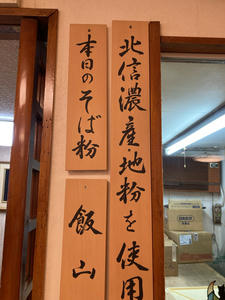 北信濃産・地粉を使用
本日のそば粉
飯山